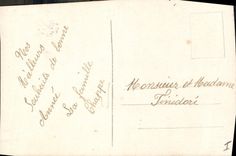 Nos
Meilleurs
Souhaits de bonne
Année
La famille
Chappe
Monsieur et Madame
Ténédoré
I